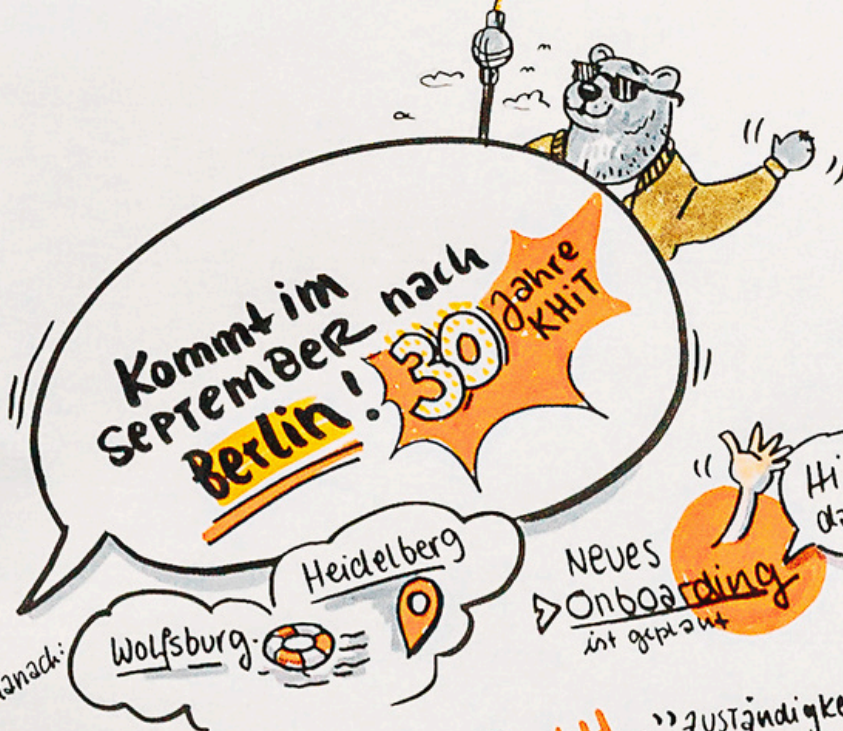 Kommt im
SEPTEMBER nach
Berlin!
30 Jahre
KHiT
Heidelberg
Wolfsburg
danach:
Hi
da
NEUES
Onboarding
ist geplant
"zuständigke